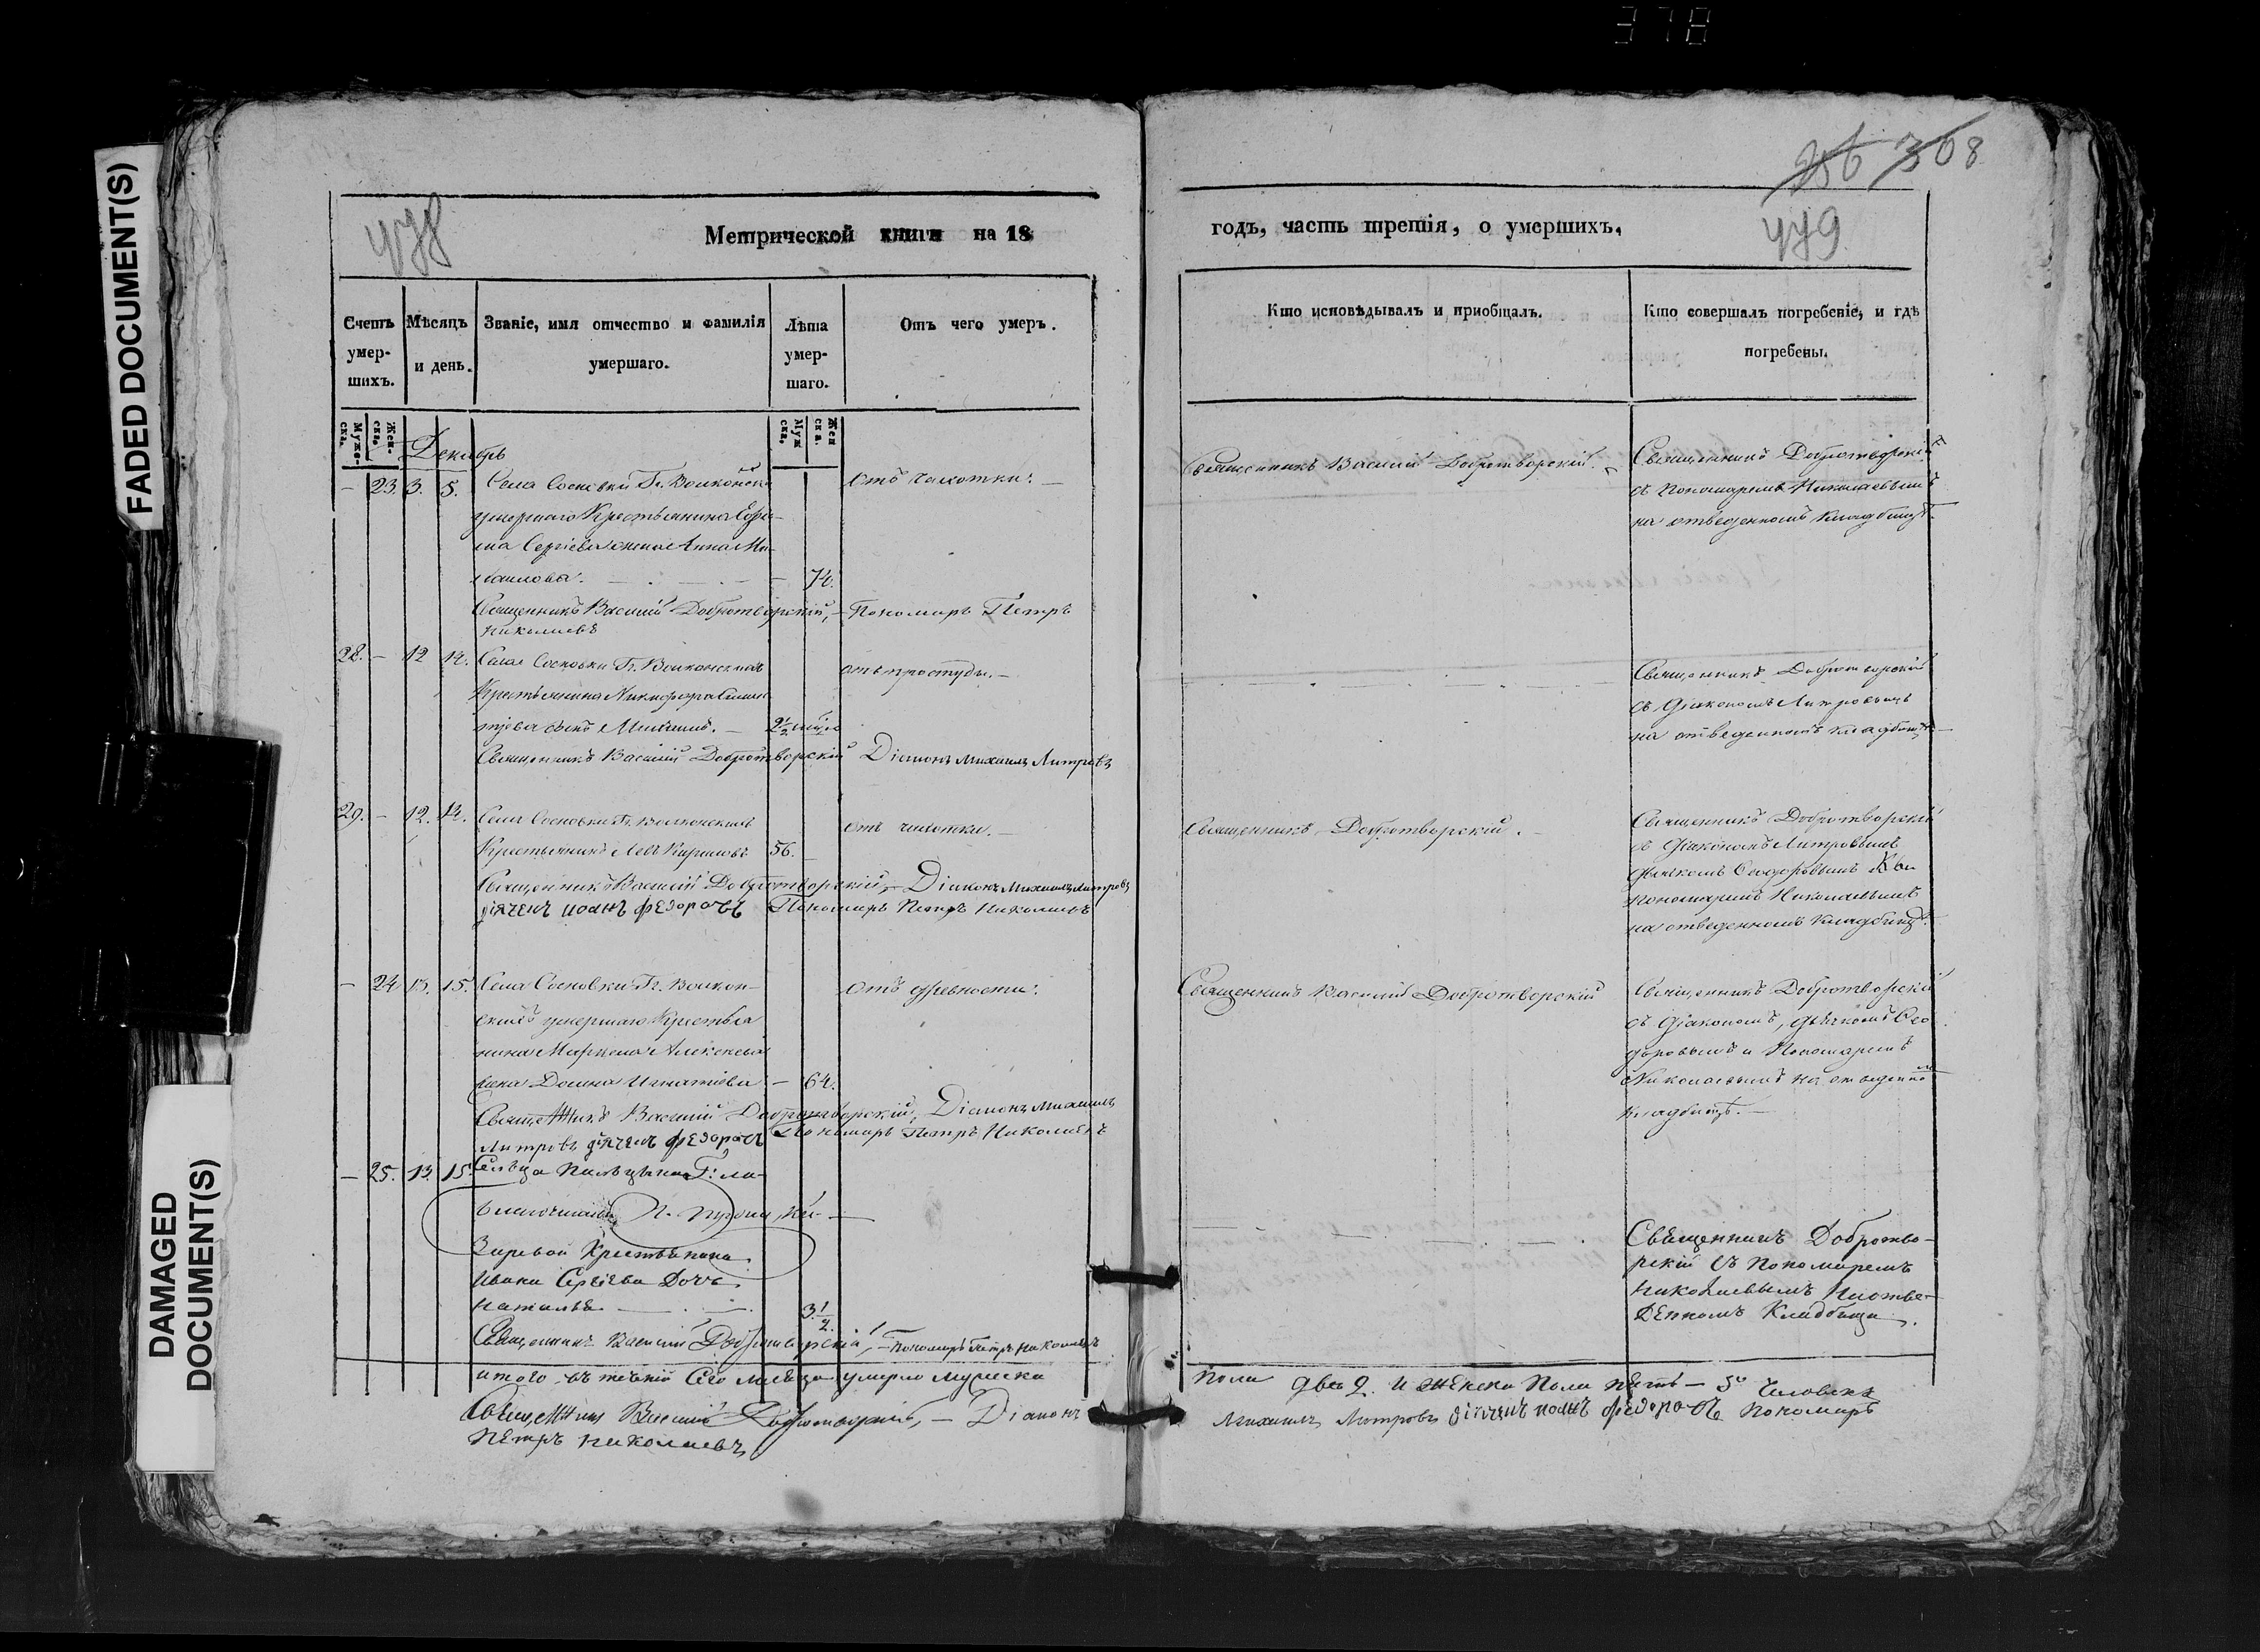 378
FADED DOCUMENT(S)
DAMAGED
DOCUMENT(S)
308
Метрической книги на 18
Счетъ умер-шихъ.
Мѣсяцъ и день.
Званіе, имя отчество и фамилія умершаго.
Лѣта умер-шаго.
Отъ чего умеръ.
Муже-ска.
Жен-ска.
Муж ска,
Жен ска.
Декабрь
— 23. 3. 5. Села Сосновки Гг. Волконски
умершаго Крестьянина Ефи-
ма Сергіева жена Анна Ми-
хаилова. — — 74.
Отъ чахотки.
Священникъ Василій Добротворскій, — Пономарь Петръ
Николаевъ
28. — 12 14. Села Сосновки Гг. Волконскихъ
Крестьянина Никифора
сынъ Михаилъ. — 2 1/2
отъ простуды. —
Священникъ Василій Добротворскій Діаконъ Михаилъ Митровъ
29. — 12. 14. Села Сосновки Гг. Волконскихъ
Крестьянинъ Левъ Кириловъ 56. —
отъ чахотки. —
Священникъ Василій Добротворскій, — Діаконъ Михаилъ Митровъ
дьячекъ иоанъ федоровъ Пономарь Петръ Николаевъ
— 24 13. 15. Села Сосновки Гг. Волкон-
скихъ умершаго Крестья
нина Алексеева
жена Домна Игнатіева — 64.
Отъ древности.
Священникъ Василій Добротворскій, Діаконъ Михаилъ
Митровъ дьячекъ федоровъ Пономарь Петръ Николаевъ
— 25. 13. 15. Сельца
Крестьянина
Ивана Сергіева Дочь
Наталья — 3 1/2
Священникъ Василій Добротворскій, — Пономарь Петръ Николаевъ
итого въ теченіи Сего месяца умерло мужеска
Священникъ Василій Добротворскій, — Діаконъ
Петръ Николаевъ
годъ, часть третія, о умершихъ.
Кто исповѣдывалъ и пріобщалъ.
Кто совершалъ погребеніе, и гдѣ погребены.
Священникъ Василій Добротворскій.
Священникъ Добротворскій
съ Пономаремъ Николаевымъ
на отведенномъ кладбищѣ.
Священникъ Добротворскій
съ Діакономъ Митровымъ
на отведенномъ кладбищѣ —
Священникъ Добротворскій. —
Священникъ Добротворскій
съ Діакономъ Митровымъ
дьячкомъ Ѳеодоровымъ
пономаремъ Николаевымъ
на отведенномъ кладбищѣ.
Священникъ Василій Добротворскій
Священникъ Добротворскій
съ Діакономъ, дьячкомъ Ѳео
доровымъ и Пономаремъ
Николаевымъ на отведенно
кладбищѣ. —
Священникъ Добротво-
рскій съ Пономаремъ
Николаевымъ На отве-
Денномъ Кладбище.
пола два 2. и Женска Пола — Человекъ
Михаилъ Митровъ дьячекъ иоанъ федоровъ Пономарь